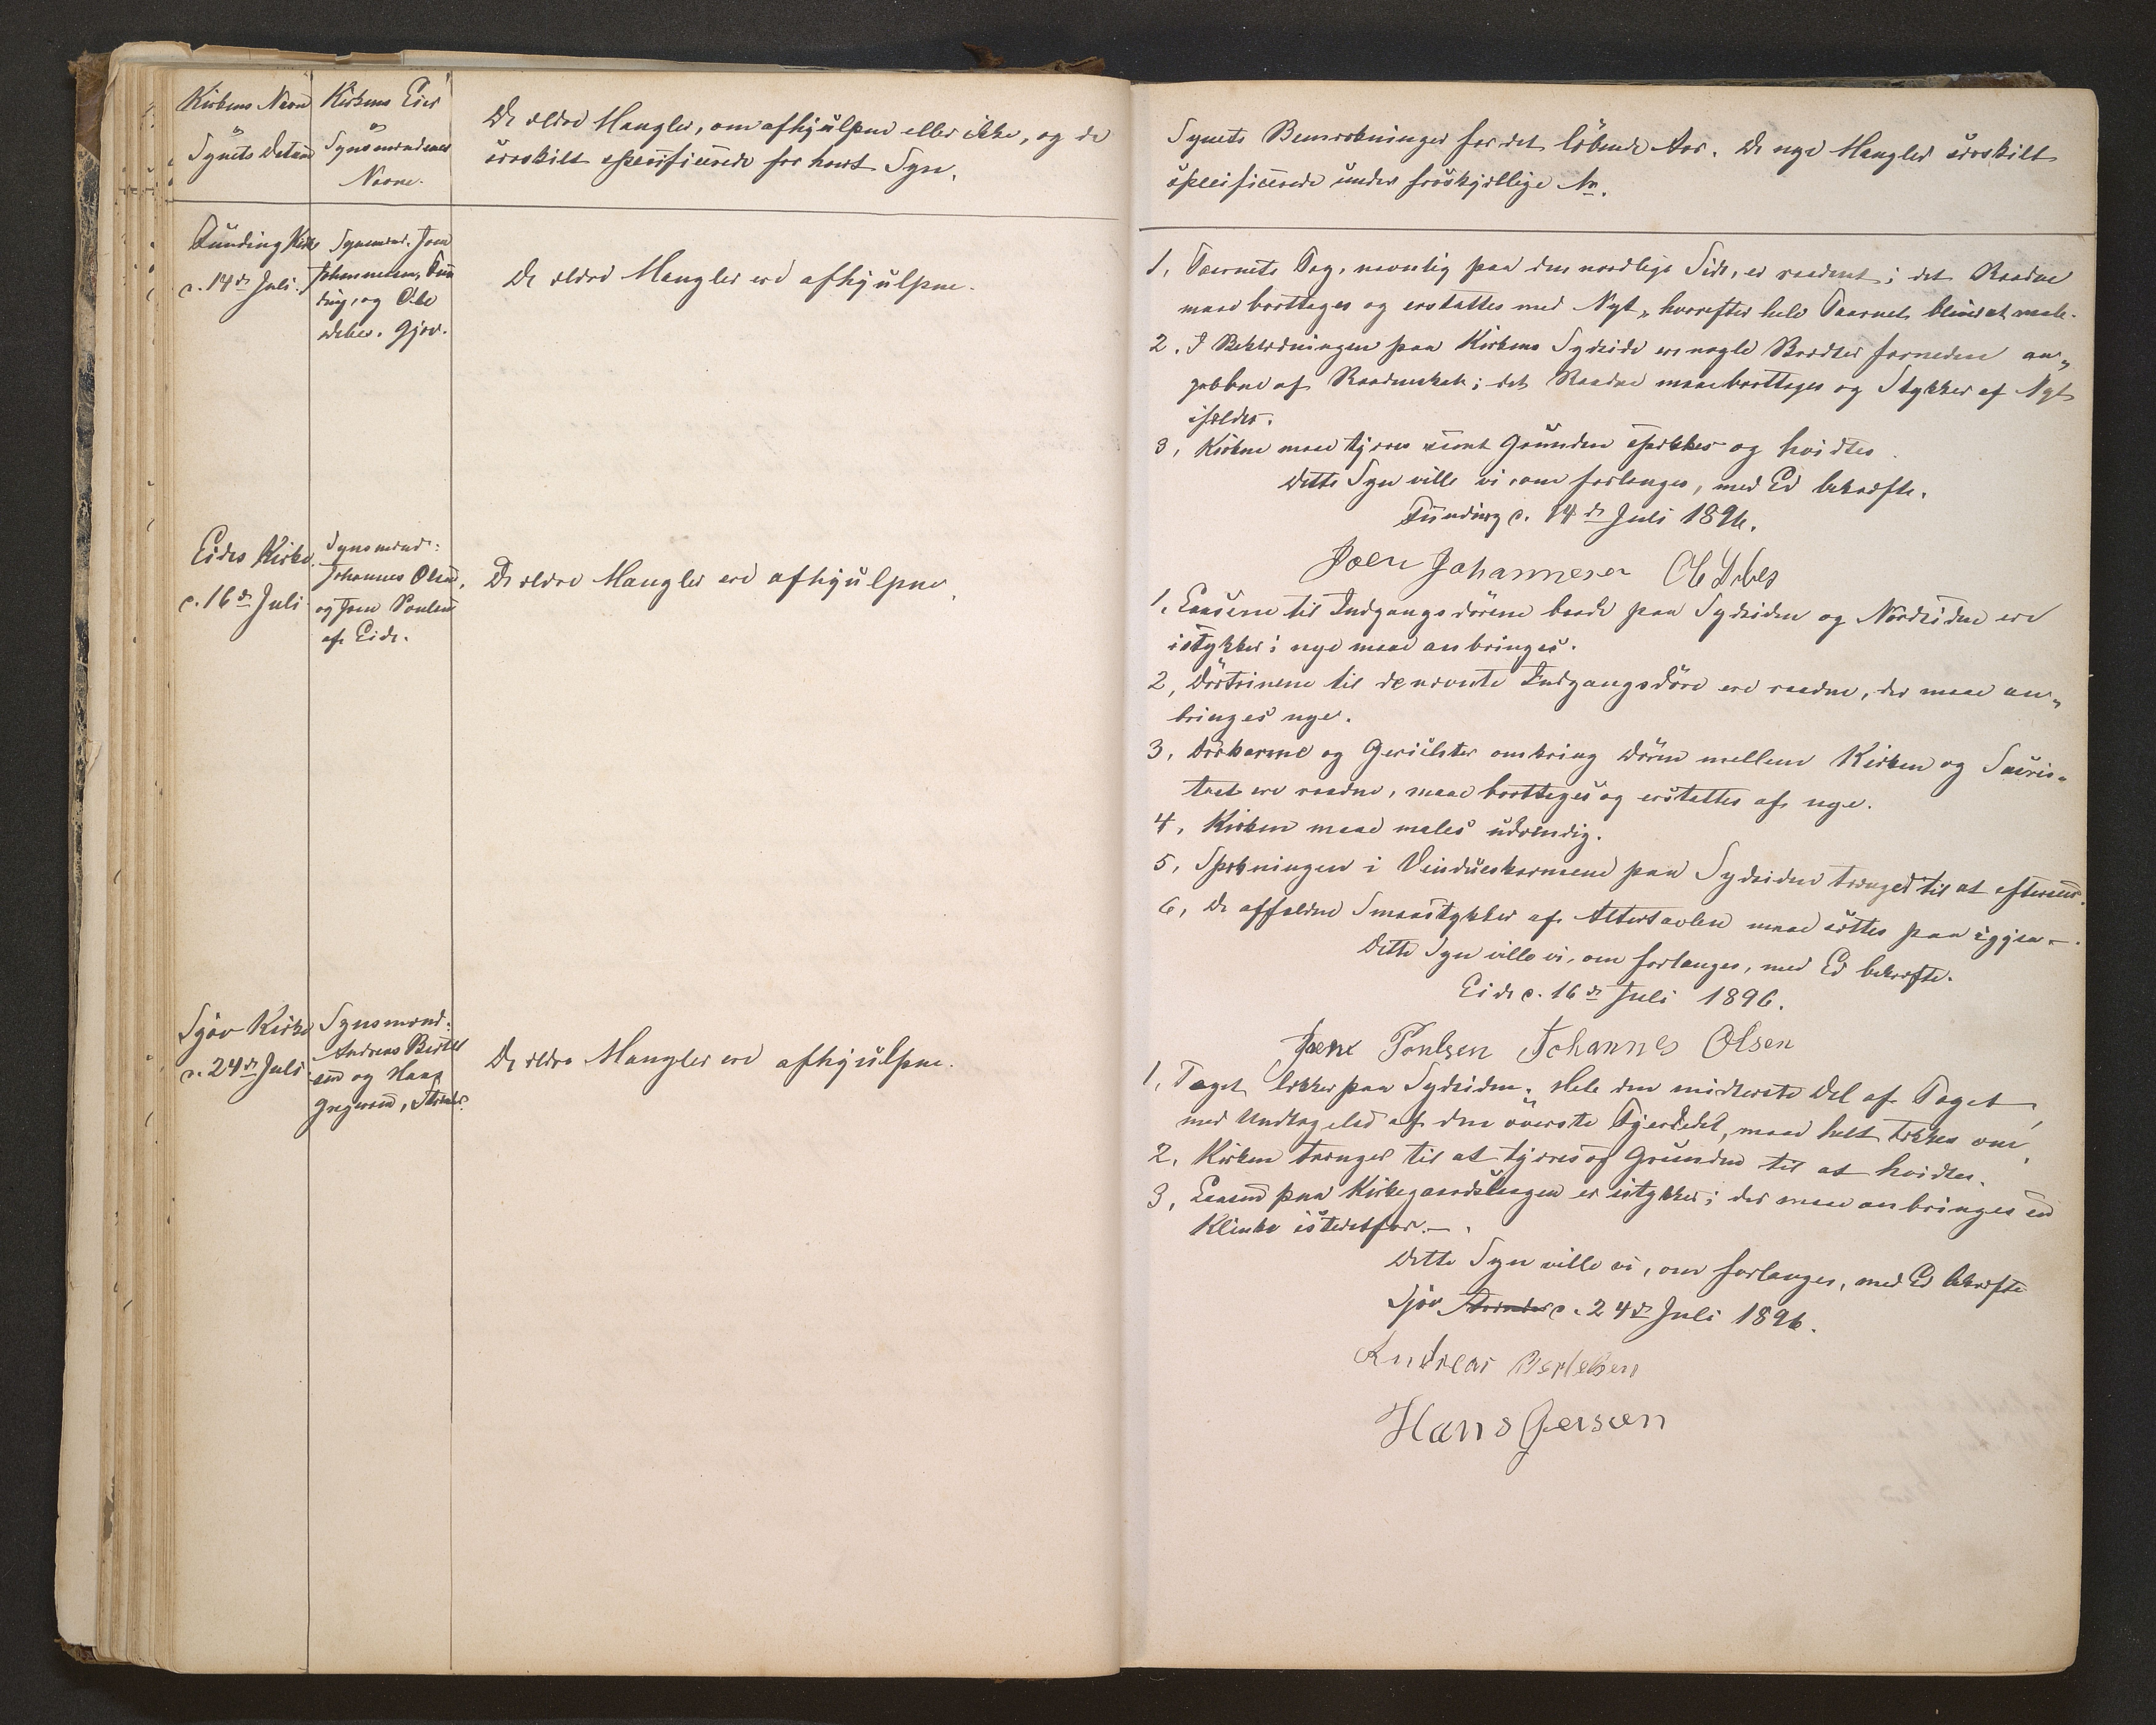 Kirkens Navn
og
Synets Datum
Kirkens Eier
og
Synsmændenes
Navne.
De ældre Mangler, om afhjulpne eller ikke, og da
særskilt specificerede for hvert Syn.
Funding Kirke
d. 14de Juli.
Synsmænd. Joen
Johannesen, Fun
ding, og Ole
Debes. Gjov.
De ældre Mangler ere afhjulpne.
Eides Kirke.
d. 16de Juli
Synsmænd:
Johannes Olsen,
og Joen Poulsen
af Eide.
De ældre Mangler ere afhjulpne.
Gjov Kirke
d. 24de Juli
Synsmænd:
Andreas Bertel
sen og Hans
De ældre Mangler ere afhjulpne.
Synets Bemærkninger for det löbende Aar. De nye Mangler særskilt
specificerede under forskjellige Nr.
1, Taarnets Tag, navnlig paa den nordlige Side, er raadent; det Raadne
maa borttages og erstattes med Nyt, hvorefter hele Taarnet bliver at male.
2. I Beklædningen paa Kirkens Sydside ere nogle Brædder forneden an„
grebne af Raaddenskab; det Raadne maa borttages og Stykker af Nyt
isættes.
3, Kirken maa tjæres samt Grunden spækkes og hvidtes.
Dette Syn ville vi, om forlanges, med Ed bekræfte.
Funding d. 14de Juli 1896.
Joen Johannesen Ole Debes
1, Laasene til Indgangsdörene baade paa Sydsiden og Nordsiden ere
istykker; nye maae anbringes.
2, Dörtrinene til de nævnte Indgangsdöre ere raadne, der maae an„
bringes nye.
3, Dörkarme og Gerichter omkring Dören mellem Kirken og Sacris„
tiet ere raadne, maae borttages og erstattes af nye.
4, Kirken maae males udvendig.
5, Sprosningen i Vindueskarmene paa Sydsiden trænger til at efterses.
6, De affaldne Smaastykker af Altertavlen maae sættes paa igjen –.
Dette Syn ville vi, om forlanges, med Ed bekræfte.
Eide d. 16de Juli 1896.
Joen Poulsen Johannes Olsen
1, Taget lækker paa Sydsiden. Hele den midterste Del af Taget,
med Undtagelse af den överste Fjerdedel, maae helt tækkes om.
2, Kirken trænger til at tjæres og Grunden til at hvidtes.
3, Laasen paa Kirkegaardslaagen er istykker; der maae anbringes en
Klinke istedetfor. –.
Dette Syn ville vi, om forlanges, med Ed bekræfte
Gjov d. 24de Juli 1896.
Andreas Bertelsen
Hans Gersen